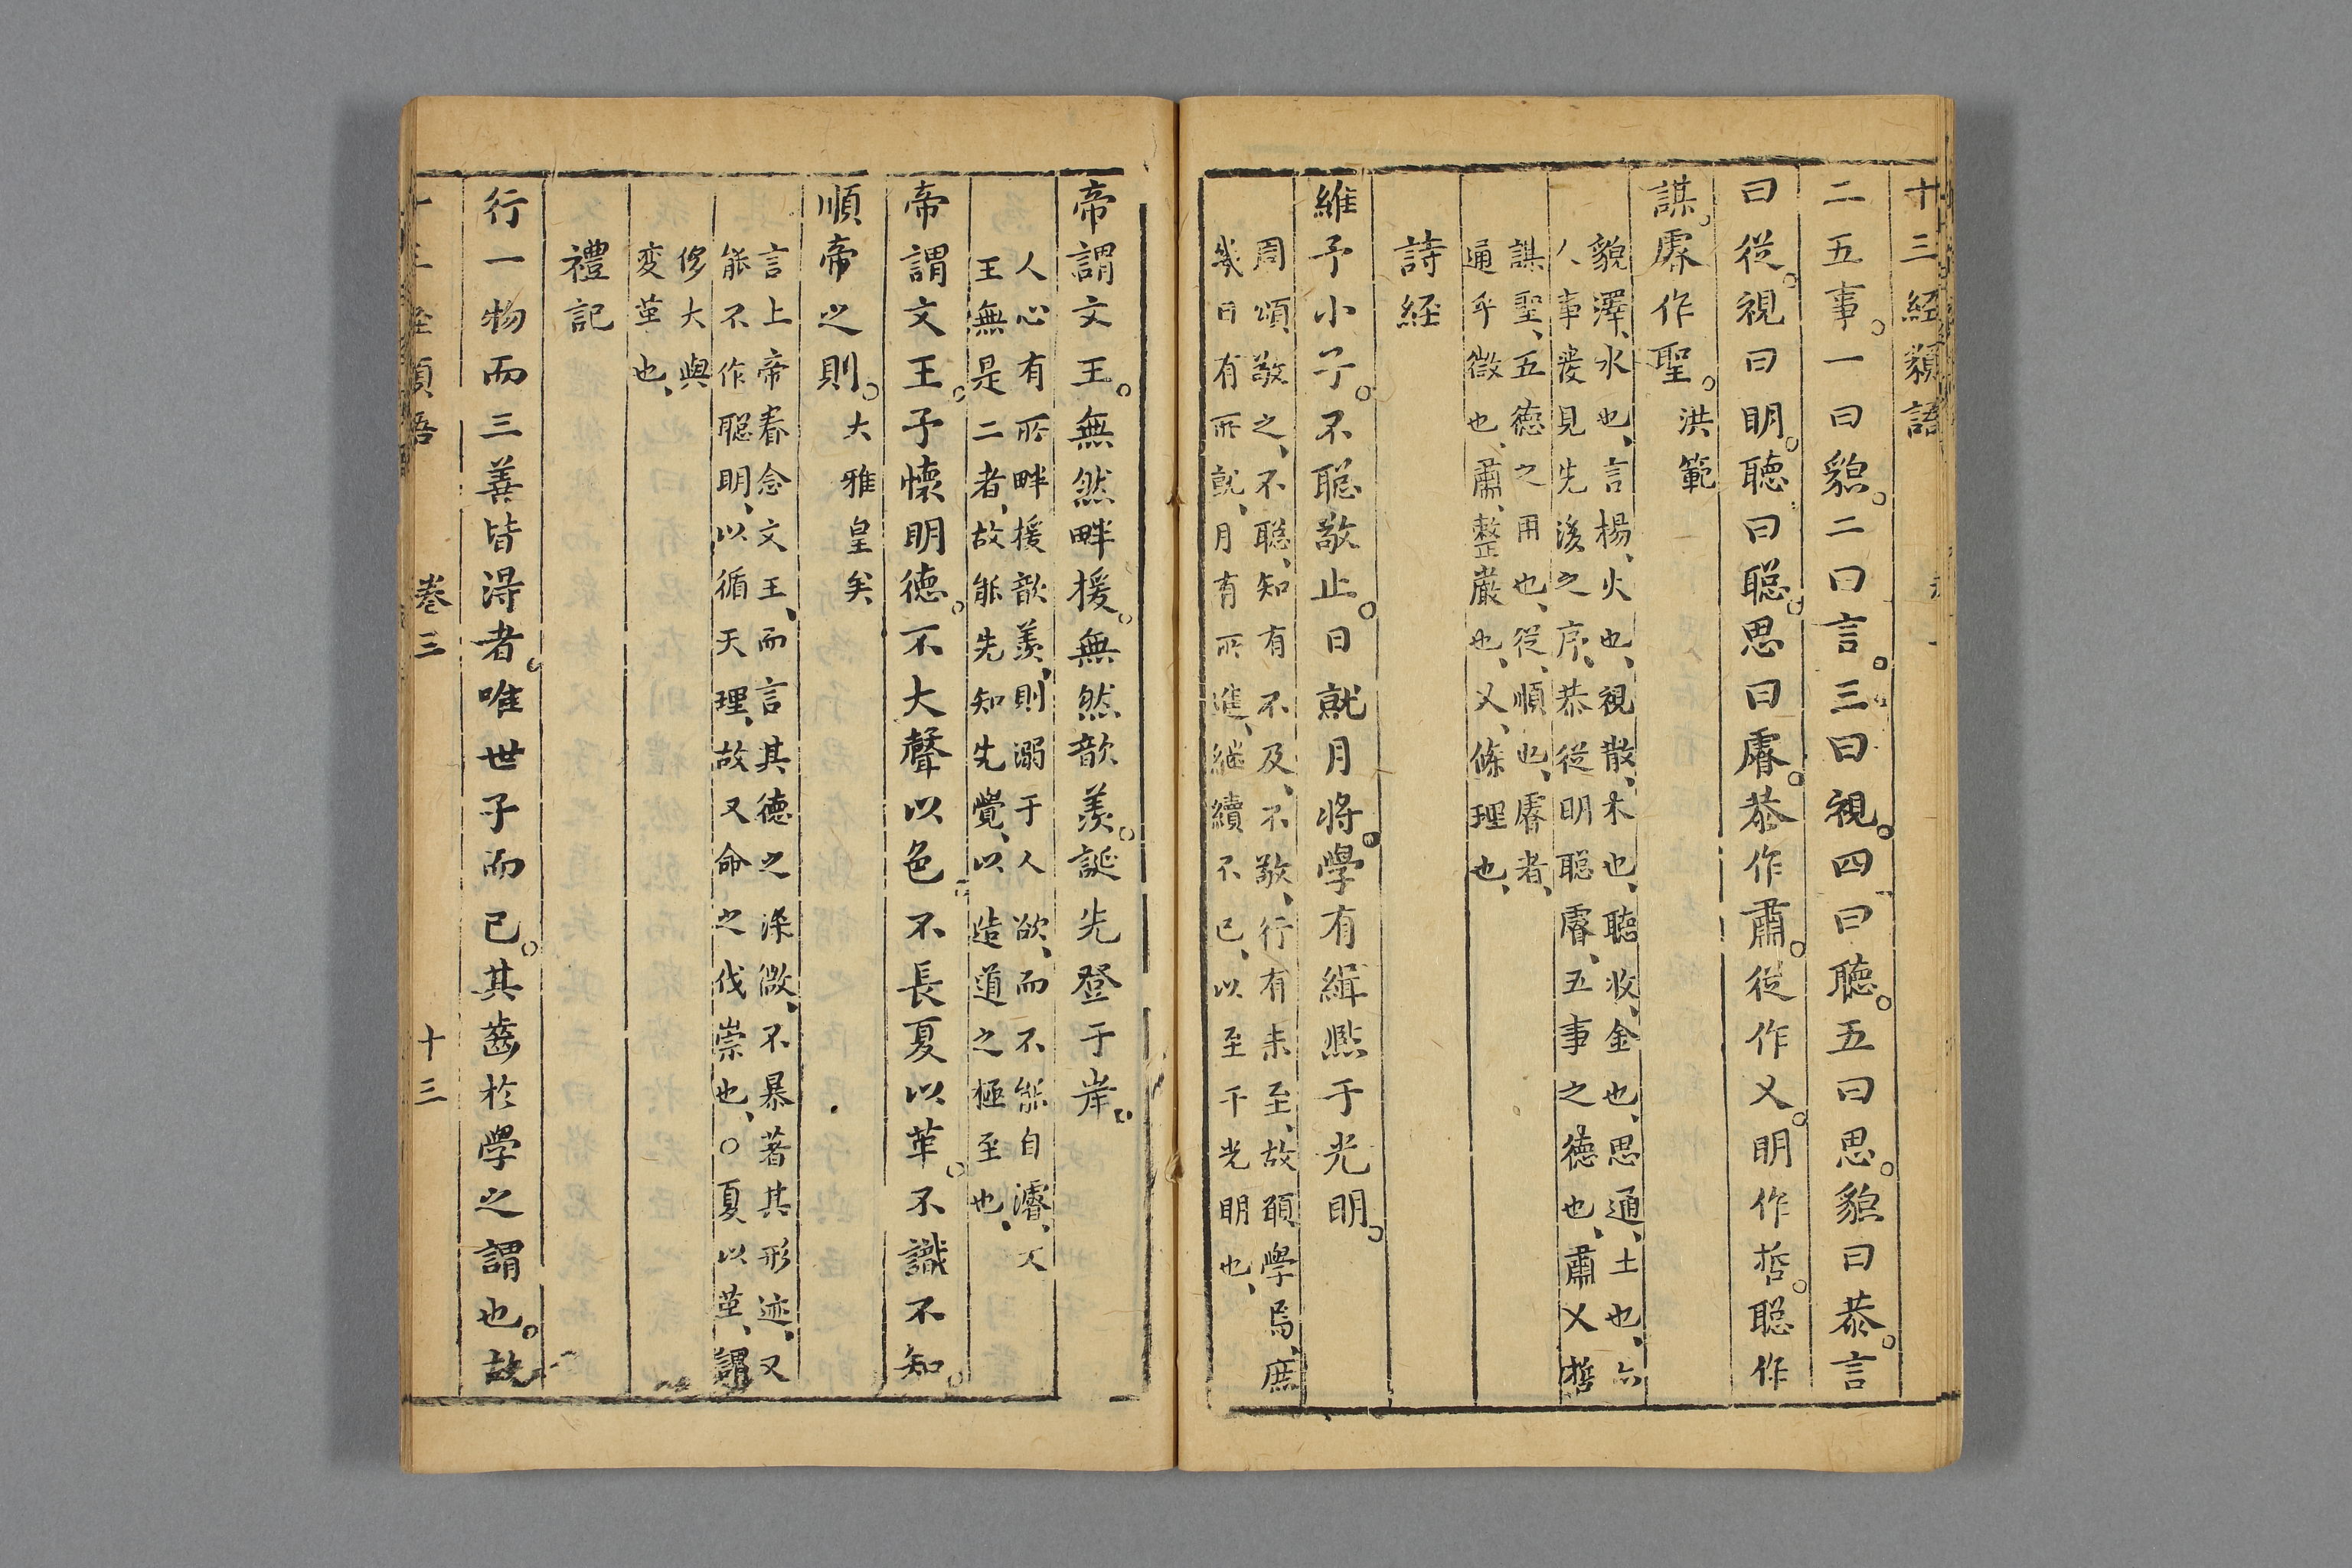 十三經類語
二五事。一曰貌。二曰言。三曰視。四曰聽。五曰思。貌曰恭。言
曰從。視曰明。聽曰聰。思曰睿。恭作肅。從作乂。明作哲。聰作
謀。睿作聖。洪範
貌澤、水也、言揚、火也、視散、木也、聽收、金也、思通、土也、亦
人事發見先後之序、恭從明聰睿、五事之德也、肅乂哲
謀聖、五德之用也、從、順也、睿者、
通乎微也、肅、整嚴也、乂、條理也、
詩經
維予小子。不聰敬止。日就月將。學有緝熙于光明。
周頌、敬之、不聰、知有不及、不敬、行有未至、故願學焉、庶
幾日有所就、月有所進、継續不已、以至于光明也、
帝謂文王。無然畔援。無然歆羨。誕先登于岸。
人心有所畔援歆羨、則溺于人欲、而不能自濬、文
王無是二者、故能先知先覺、以造道之極至也、
帝謂文王。予懷明德。不大聲以色。不長夏以革。不識不知。
順帝之則。大雅皇矣
言上帝眷念文王、而言其德之深微、不暴著其形迹、又
能不作聰明、以循天理、故又命之伐崇也、○夏以革、謂
侈大與
変革也、
禮記
行一物而三善皆得者。唯世子而已。其齒於學之謂也。故
十三經類語 卷三 十三